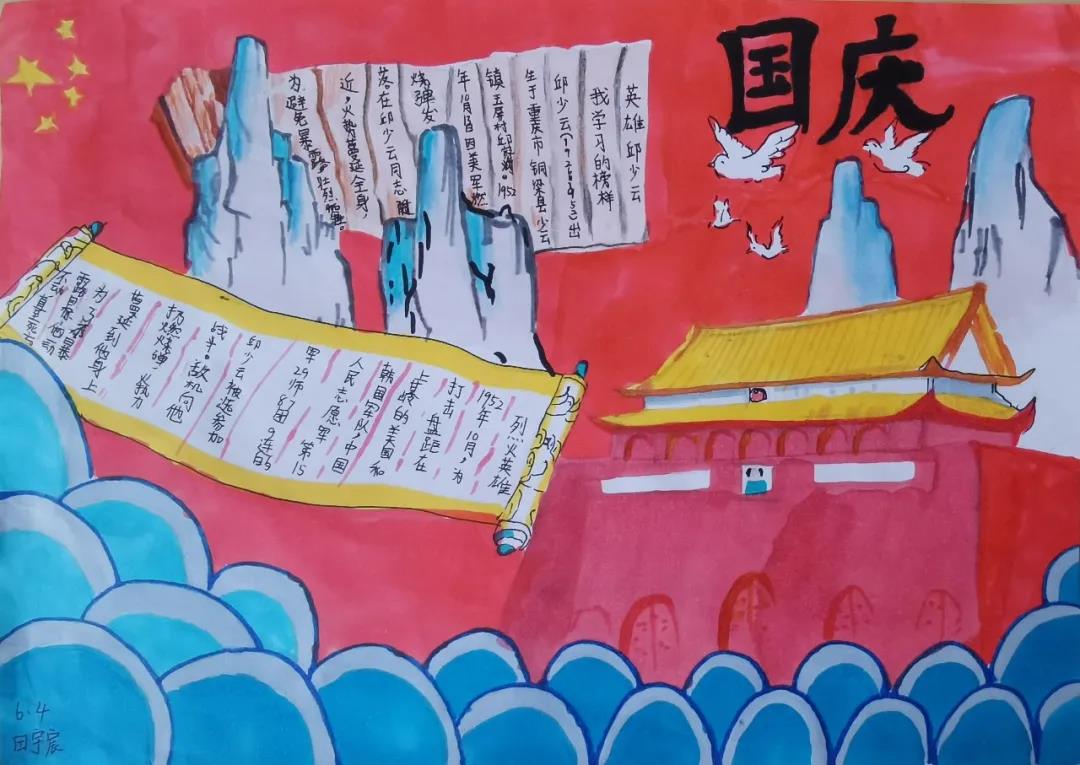 国庆
英雄邱少云
我学习的榜样
邱少云(1926-1952)出
生于重庆市铜梁县少云
镇玉屏村邱家沟。1952
年10月12日因美军燃
烧弹发
落在邱少云同志附
近,火势蔓延全身,
为避免暴露壮烈牺牲。
烈火英雄
1952年10月,为
打击盘距在
上甘岭的美国和
韩国军队,中国
人民志愿军第15
军29师87团9连的
邱少云被选参加
战斗。敌机向他
扔燃烧弹,火力
蔓延到他身上
为了不暴
露目标他
不动直至死
6.4
田宇宸